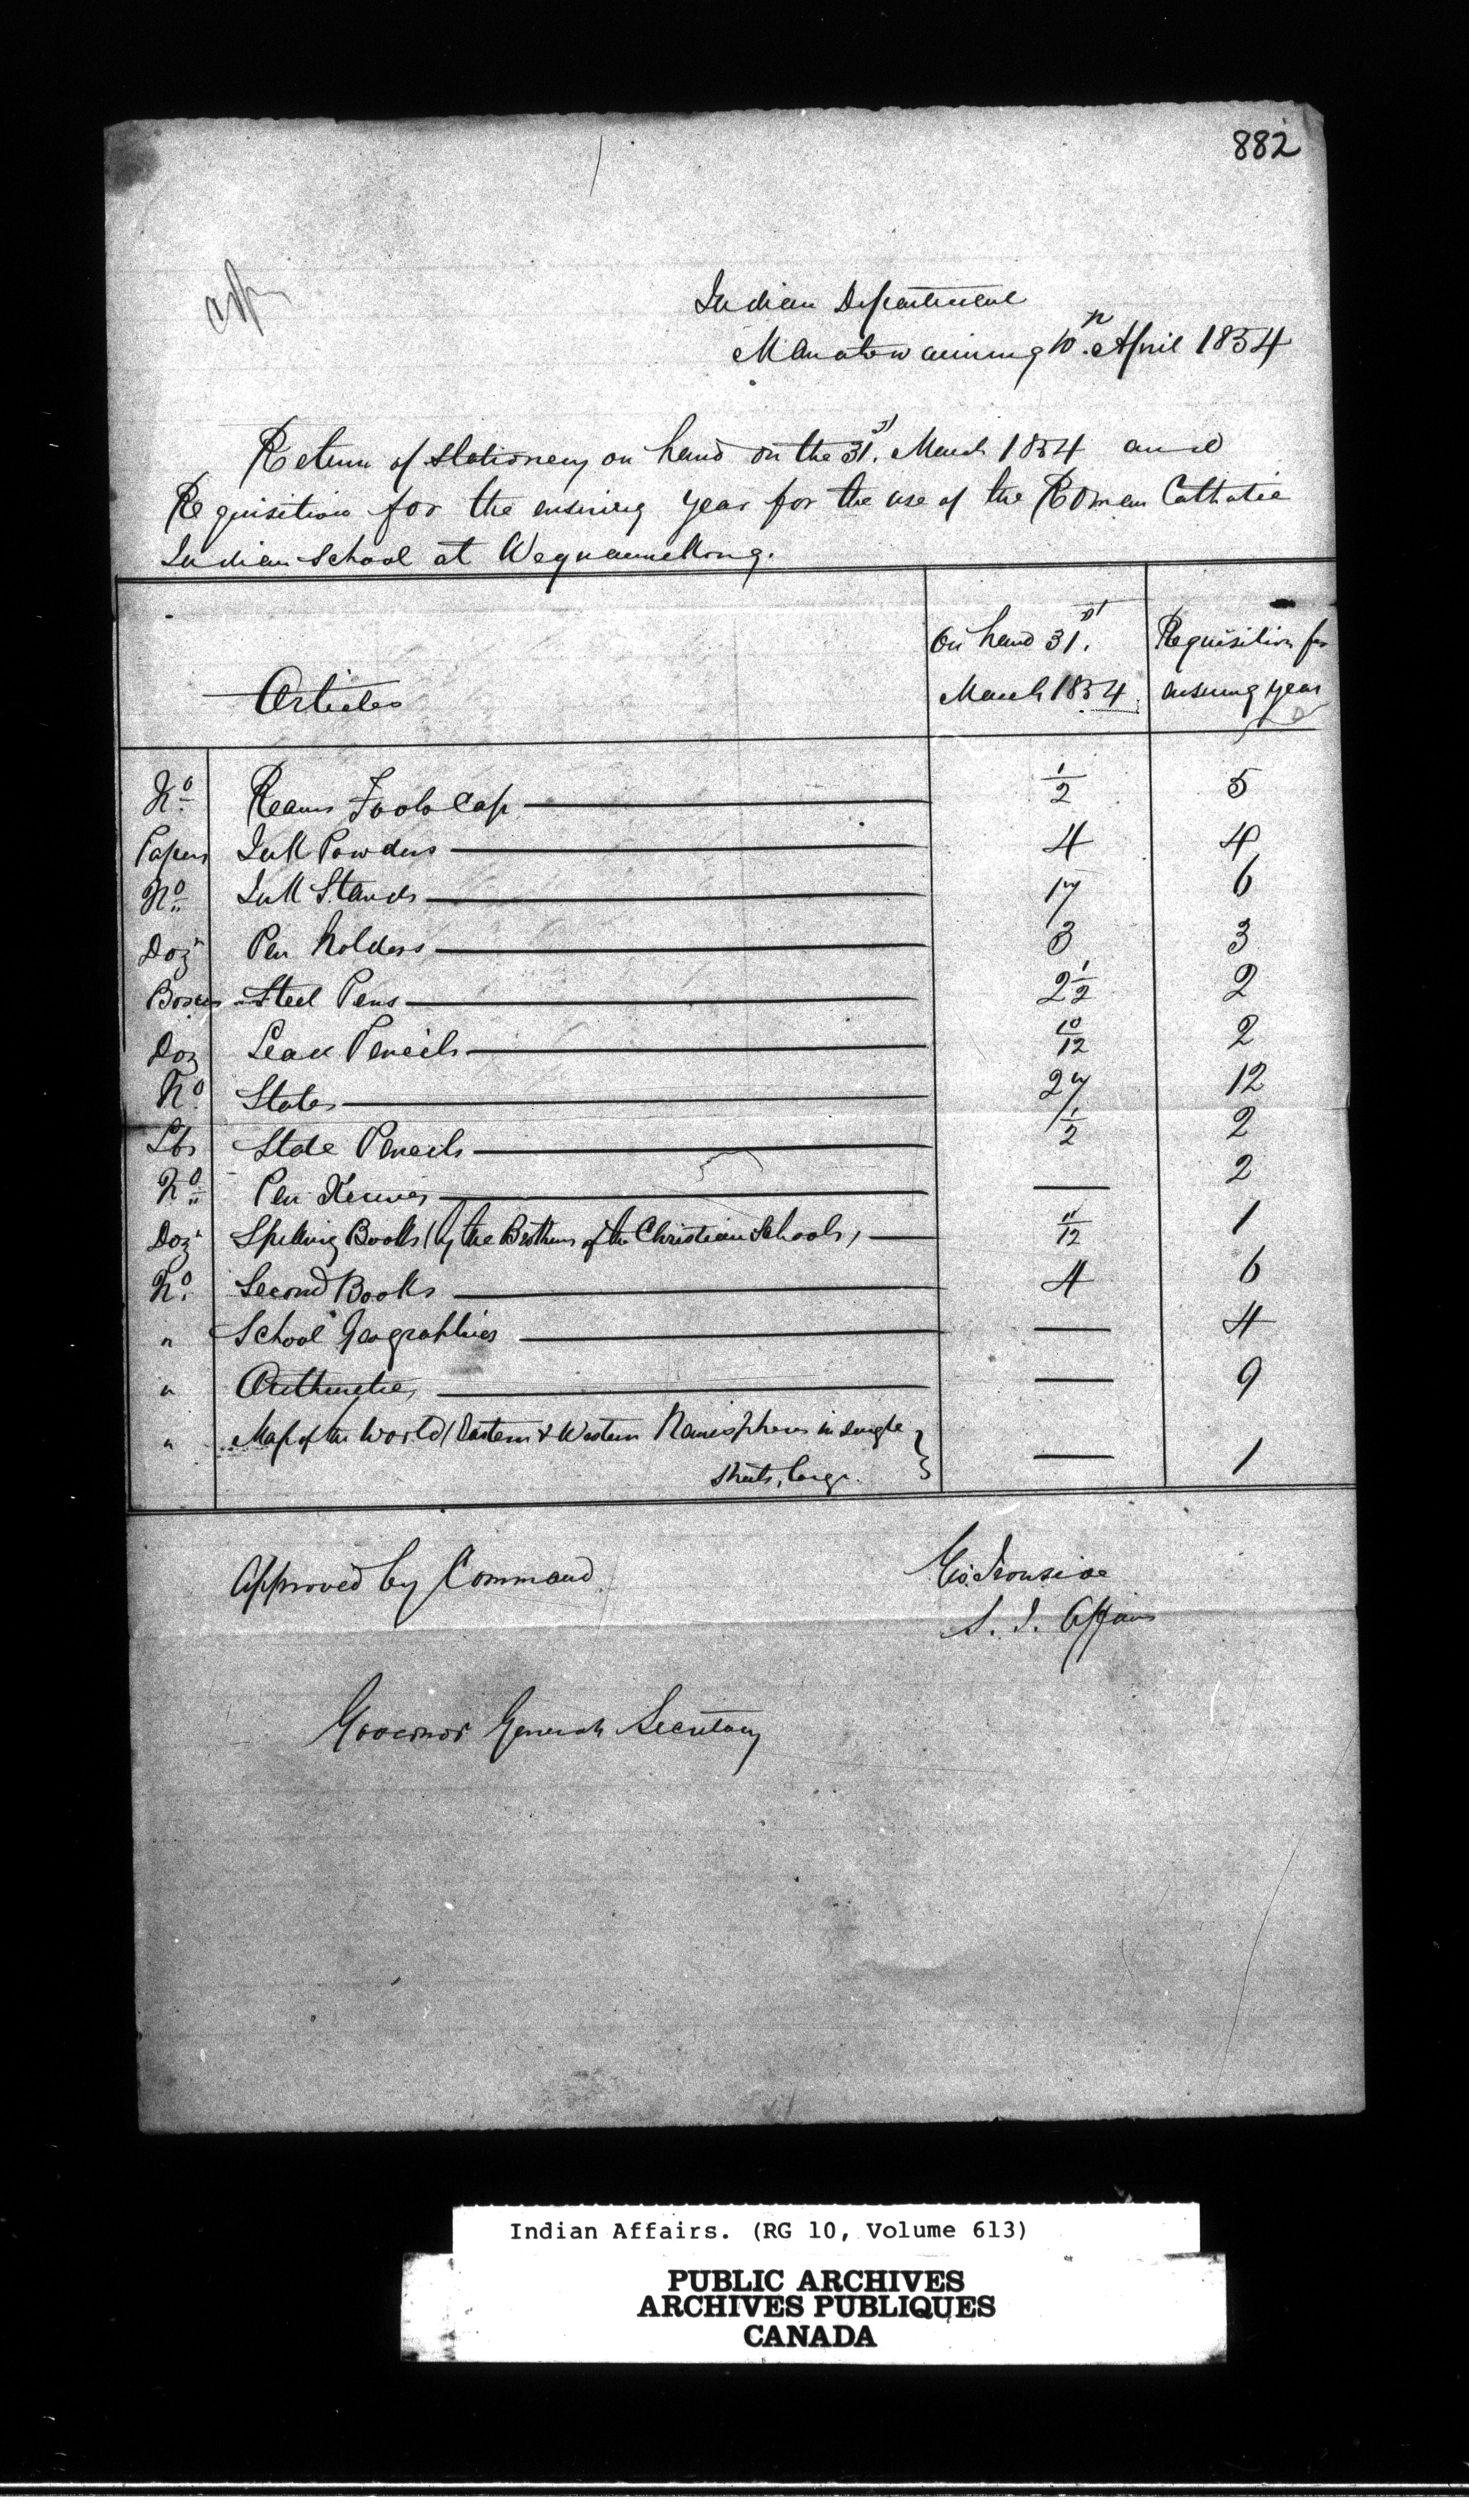 882
Indian Department
Manatowaning 10th April 1854
Return of Stationery on hand on the 31st March 1854 and
Requisition for the ensuing year for the use of the Roman Catholic
Indian School at
Articles On hand 31st March 1854 Requisition for ensuing year
No Reams Foolscap 1/2 5
Papers Ink Powders 4 4
No Ink Stands 17 6
Doz Pen holders 3 3
Boxes Steel Pens 2 1/2 2
Doz Lead Pencils 10/12 2
No Slates 27 12
Lbs Slate Pencils 1/2 2
No Pen Knives — 2
Doz Spelling Books (by the Brothers of the Christian Schools) 11/12 1
No. Second Books 4 6
" School Geographies — 4
" Arithmetics — 9
" Map of the World (Eastern & Western Hemispheres in single
sheets, large. — 1
Approved by Command
Geo. Ironside
S. I. Affairs
Governor Generals Secretary
Indian Affairs. (RG 10, Volume 613)
PUBLIC ARCHIVES
ARCHIVES PUBLIQUES
CANADA